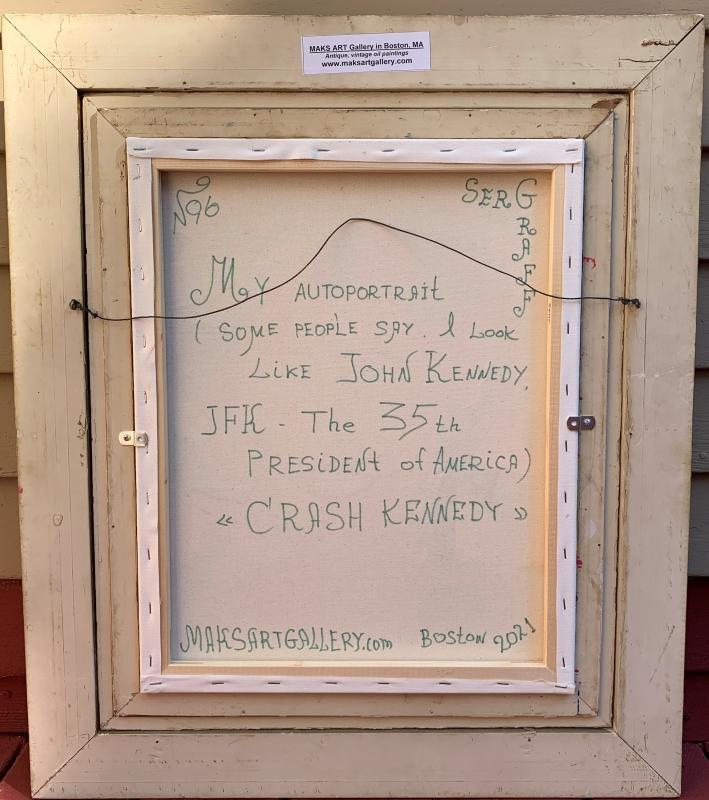 MAKS ART Gallery in Boston, MA
Antique, vintage oil paintings
www.maksartgallery.com
№96
SERGRAFF
My AUTOPORTRAit
( SOME PEOPLE SAY. I LOOK
LiKE JOHN KENNEDY,
JFK - The 35th
PRESiDENt of AMERiCA)
« CRASH KENNEDY »
MAKSARTGALLERY.com BOSTON 2021